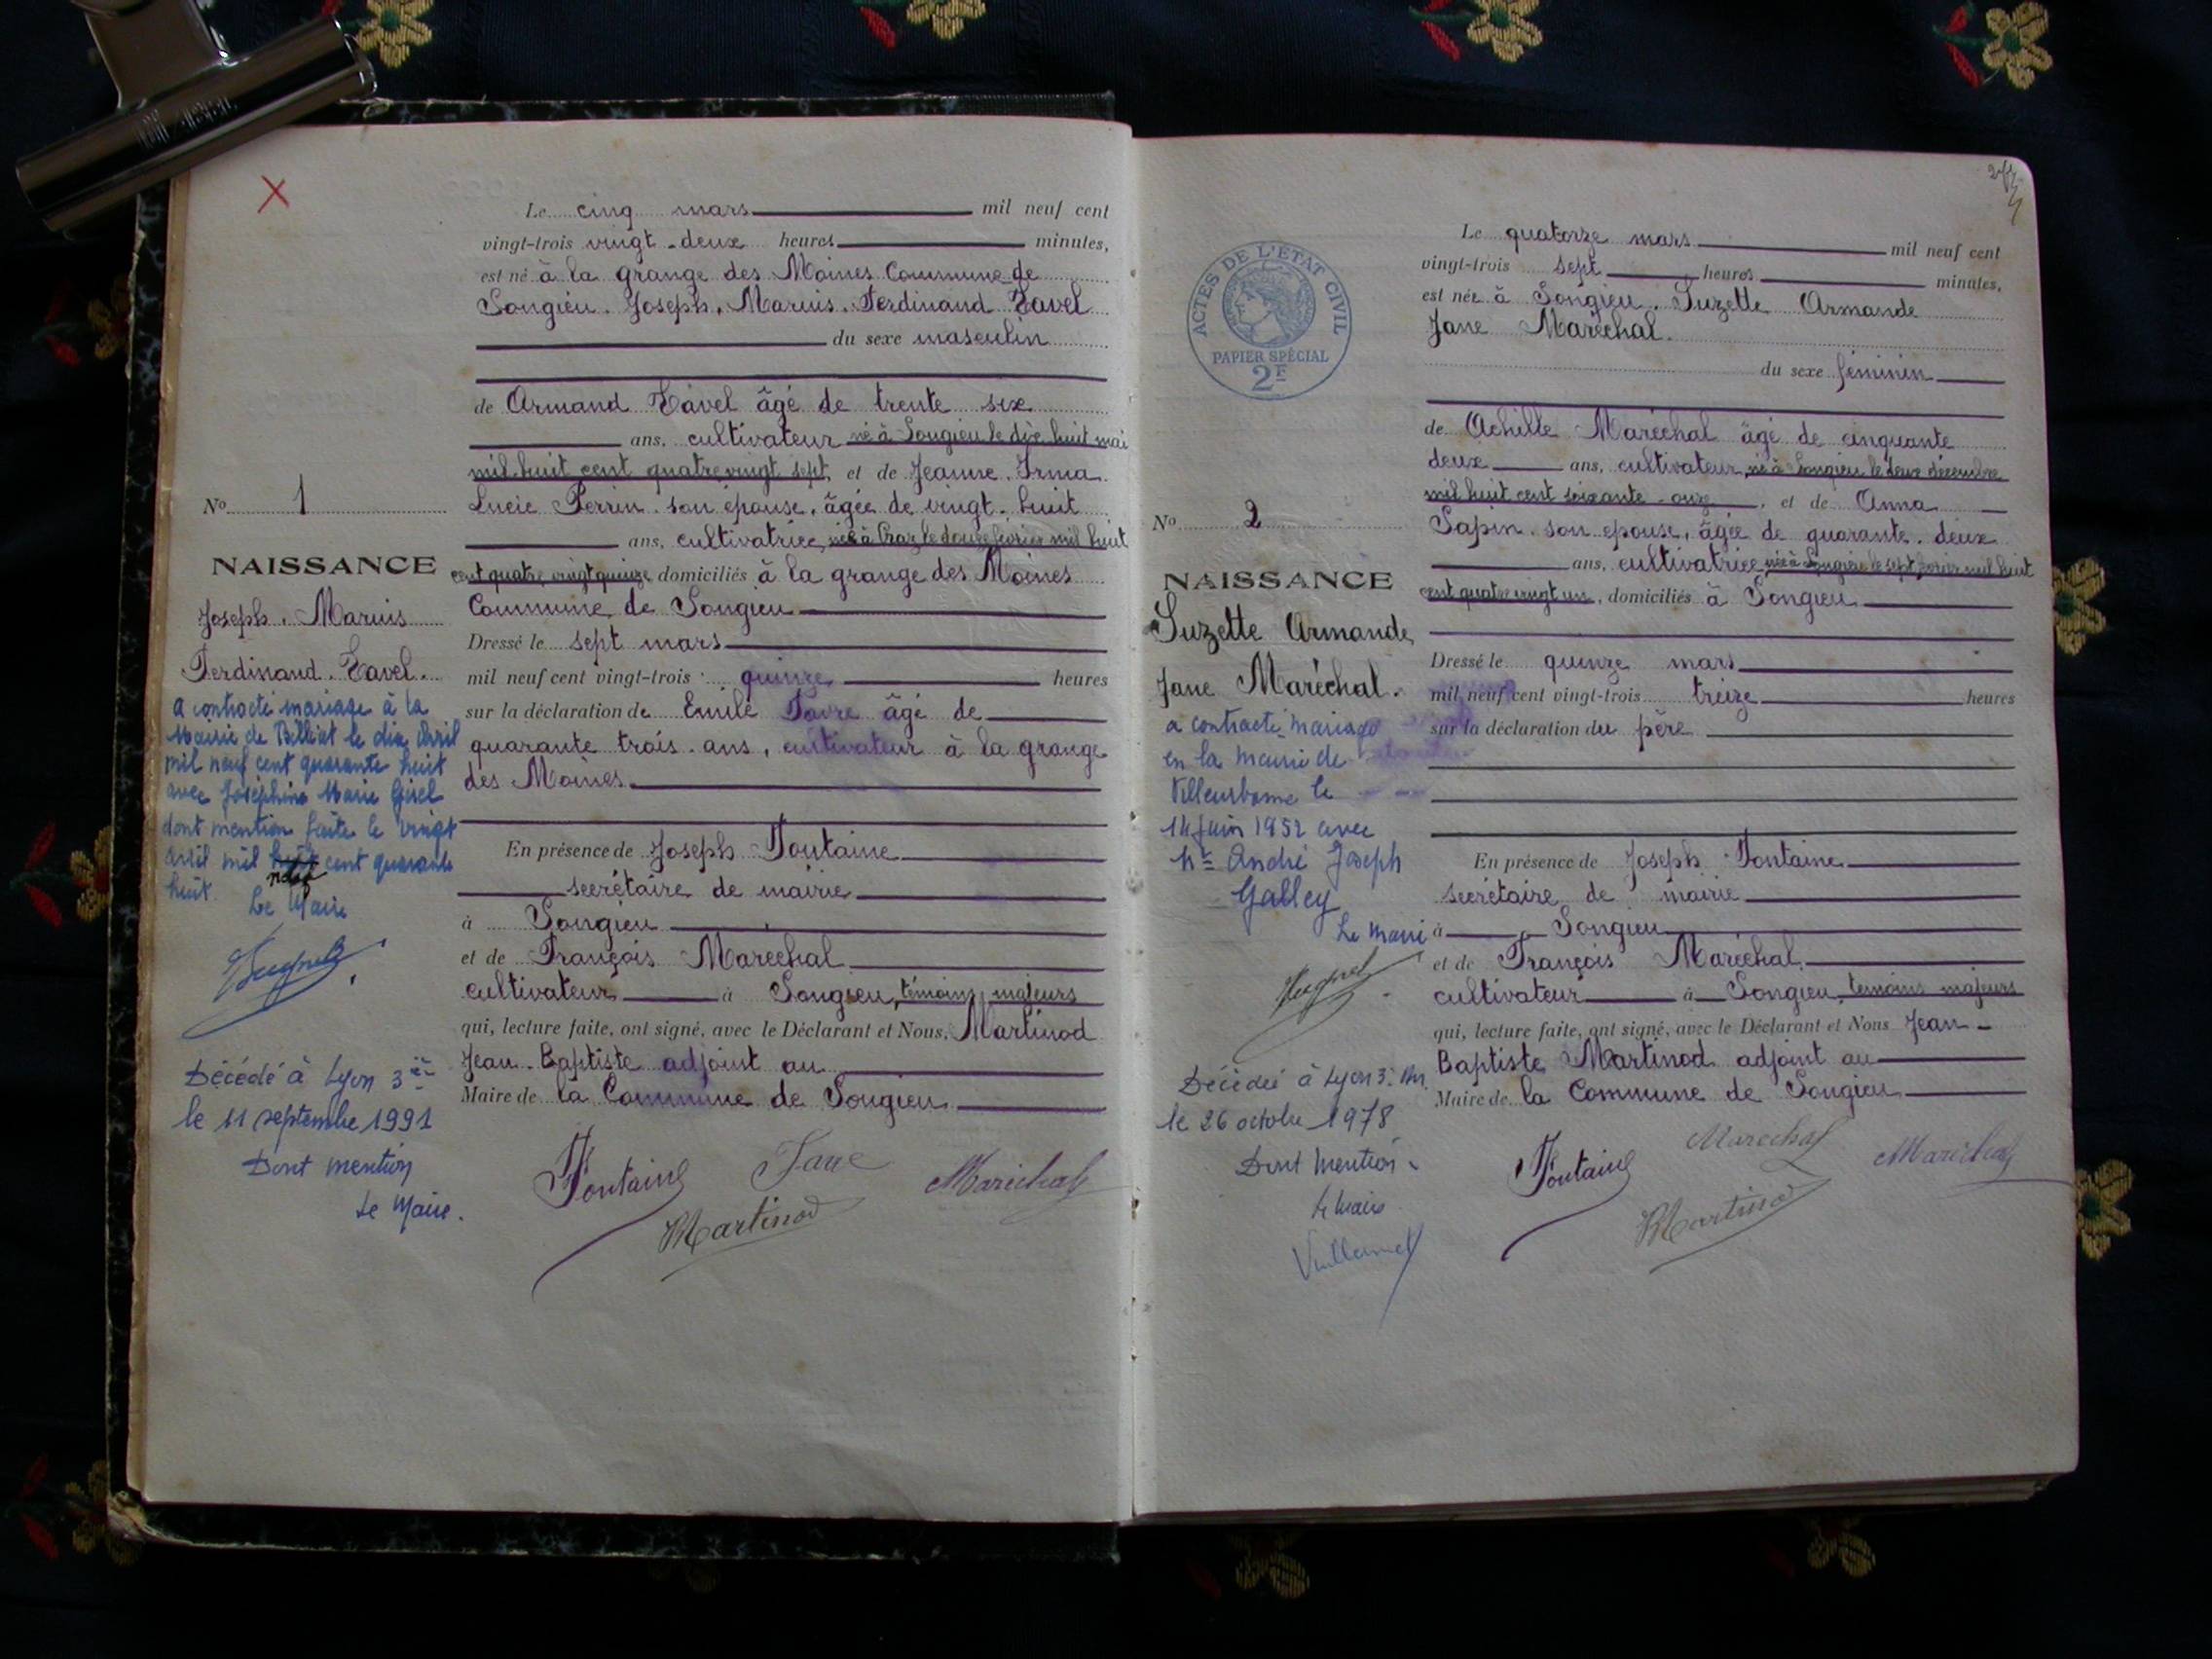 Le cinq mars mil neuf cent
vingt-trois vingt-deux heures minutes,
est né à la grange des Moines Commune de
Songieu. Joseph. Marius. Ferdinand Tavel
du sexe masculin
de Armand Tavel âgé de trente six
ans, cultivateur né à Songieu le dix huit mai
mil huit cent quatre vingt sept, et de Jeanne. Irma.
Lucie Perrin. son épouse, âgée de vingt. huit
ans, cultivatrice, née à le douze février mil huit
cent quatre vingt quinze, domiciliés à la grange des Moines
Commune de Songieu
Dressé le sept mars
mil neuf cent vingt-trois quinze heures
sur la déclaration de Emile Favre âgé de
quarante trois. ans, cultivateur à la grange
des Moines
En présence de Joseph Fontaine
secrétaire de mairie
à Songieu
et de François Maréchal
cultivateur à Songieu, témoins majeurs
qui, lecture faite, ont signé, avec le Déclarant et Nous, Martinod
Jean. Baptiste adjoint au
Maire de la Commune de Songieu
Fontaine Favre Maréchal
Martinod
No 1
NAISSANCE
Joseph. Marius
Ferdinand. Tavel.
a contracté mariage à la
Mairie de Billiat le dix Avril
mil neuf cent quarante huit
avec Joséphine Marie
dont mention faite le vingt
avril mil huit cent quarante
neuf
huit.
Le Maire
Décédé à Lyon 3è
le 11 septembre 1991
Dont mention
Le Maire.
ACTES DE L'ÉTAT CIVIL
PAPIER SPÉCIAL
2F
Le quatorze mars mil neuf cent
vingt-trois sept heures minutes,
est née à Songieu. Suzette Armande
Jane Maréchal.
du sexe féminin
de Achille Maréchal âgé de cinquante
deux ans, cultivateur, né à Songieu le deux décembre
mil huit cent soixante-onze, et de Anna
Sapin. son épouse, âgée de quarante. deux
ans, cultivatrice née à Songieu le sept février mil huit
cent quatre vingt un, domiciliés à Songieu
Dressé le quinze mars
mil neuf cent vingt-trois treize heures
sur la déclaration du père
En présence de Joseph Fontaine
secrétaire de mairie
à Songieu
et de François Maréchal.
cultivateur à Songieu, témoins majeurs
qui, lecture faite, ont signé, avec le Déclarant et Nous Jean-
Baptiste Martinod adjoint au
Maire de la Commune de Songieu
Fontaine Marechal Maréchal
Martinod
No 2
NAISSANCE
Suzette Armande
Jane Maréchal.
a contracté mariage
en la mairie de
Villeurbanne le
14 juin 1952 avec
Mr André Joseph
Galley
Le maire
Décédée à Lyon 3è
le 26 octobre 1978
Dont Mention
le Maire